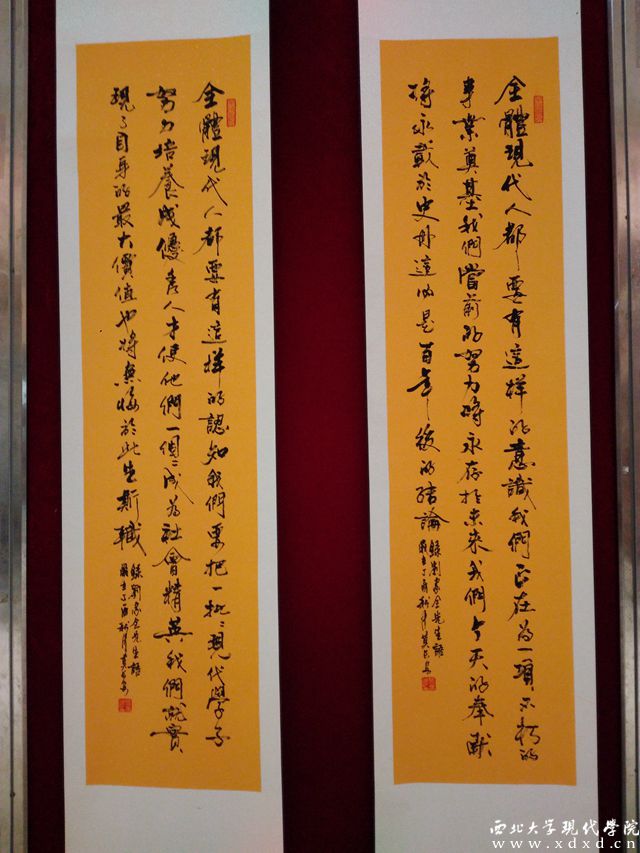 全體現代人都要有這樣的意識我們正在為一項不朽的
事業奠基我們當前的努力將永存於未來我們今天的奉獻
將永載於史冊這將是百年後的結論
錄劉家全先生語
全體現代人都要有這樣的認知我們要把一批批現代學子
努力培養成優秀人才使他們一個個成為社會精英我們就實
現了自身的最大價值也將無悔於此生斯職
錄劉家全先生語
西北大学现代学院
www.xdxd.cn